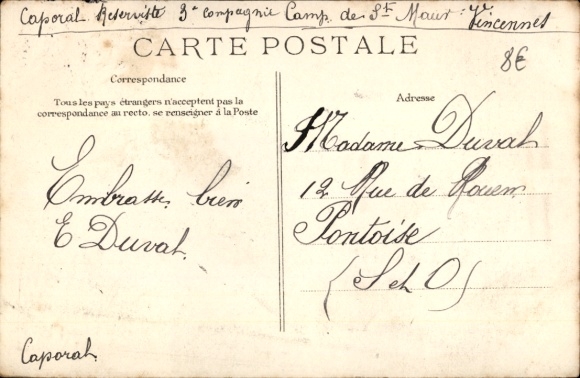 Caporal Reserviste 3e compagnie Camp. de St Maur. Vincennes
CARTE POSTALE
8€
Correspondance
Tous les pays étrangers n'acceptent pas la
correspondance au recto, se renseigner à la Poste
Embrasse bien
E Duval
Caporal
Adresse
Madame Duval
12 Rue de Rouen
Pontoise
(S et O)